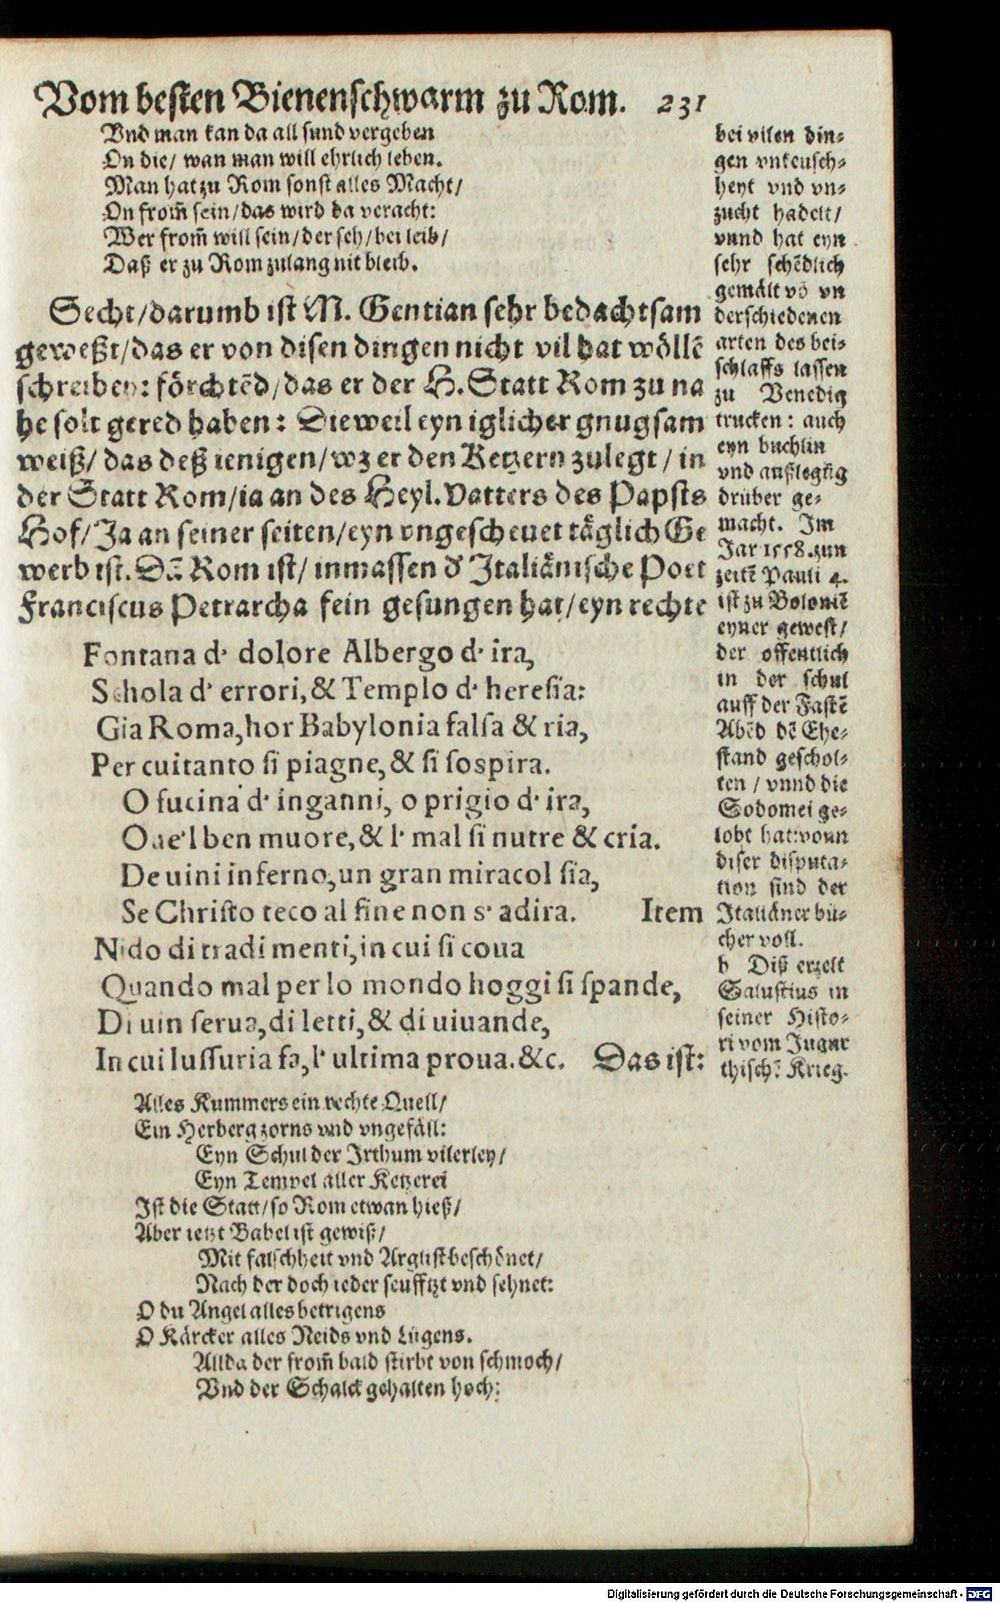 Vom besten Bienenschwarm zu Rom. 231
Vnd man kan da all sund vergeben
On die/ wan man will ehrlich leben.
Man hat zu Rom sonst alles Macht/
On from̃ sein/ das wird da veracht:
Wer from̃ will sein/ der seh/ bei leib/
Daß er zu Rom zulang nit bleib.
Secht/darumb ist M. Gentian sehr bedachtsam
geweßt/das er von disen dingen nicht vil hat wöllẽ
schreiben: förchtẽd/das er der H. Statt Rom zu na
he solt gered haben: Dieweil eyn iglicher gnugsam
weiß/ das deß ienigen/wz er den Ketzern zulegt/ in
der Statt Rom/ia an des Heyl. Vatters des Papsts
Hof/Ja an seiner seiten/eyn vngescheuet täglich Ge
werb ist. Dã Rom ist/ inmassen d' Italiänische Poet
Franciscus Petrarcha fein gesungen hat/eyn rechte
Fontana d' dolore Albergo d' ira,
Schola d' errori, & Templo d' heresia:
Gia Roma, hor Babylonia falsa & ria,
Per cui tanto si piagne, & si sospira.
O fucina d' inganni, o prigio d' ira,
Oue'l ben muore, & l' mal si nutre & cria.
De uini inferno, un gran miracol sia,
Se Christo teco al fine non s' adira. Item
Nido di tradimenti, in cui si coua
Quando mal per lo mondo hoggi si spande,
Di uin serua, di letti, & di uiuande,
In cui lussuria fa, l' ultima proua. &c. Das ist:
Alles Kummers ein rechte Quell/
Ein Herberg zorns vnd vngefäll:
Eyn Schul der Irthum vilerley/
Eyn Tempel aller Ketzerei
Ist die Statt/ so Rom etwan hieß/
Aber ietzt Babel ist gewiß/
Mit falschheit vnd Arglist beschönet/
Nach der doch ieder seufftzt vnd sehnet:
O du Angel alles betrigens
O Kärcker alles Neids vnd Lügens.
Allda der from̃ bald stirbt von schmoch/
Vnd der Schalck gehalten hoch:
bei vilen din-
gen vnkeusch-
heyt vnd vn-
zucht hadelt/
vnnd hat eyn
sehr schẽdlich
gemält võ vn
derschiedenen
arten des bei-
schlaffs lassen
zu Venedig
trucken: auch
eyn buchlin
vnd außlegũg
drüber ge-
macht. Im
Jar 1558. zun
zeitẽ Pauli 4.
ist zu Bolonië
eyner gewest/
der offentlich
in der schul
auff der Fastẽ
Abẽd dẽ Ehe-
stand geschol-
ten / vnnd die
Sodomei ge-
lobt hat: vonn
diser disputa-
tion sind der
Italiäner bü-
cher voll.
b Diß erzelt
Salustius in
seiner Histo-
ri vom Jugur
thischẽ Krieg.
Digitalisierung gefördert durch die Deutsche Forschungsgemeinschaft - DFG